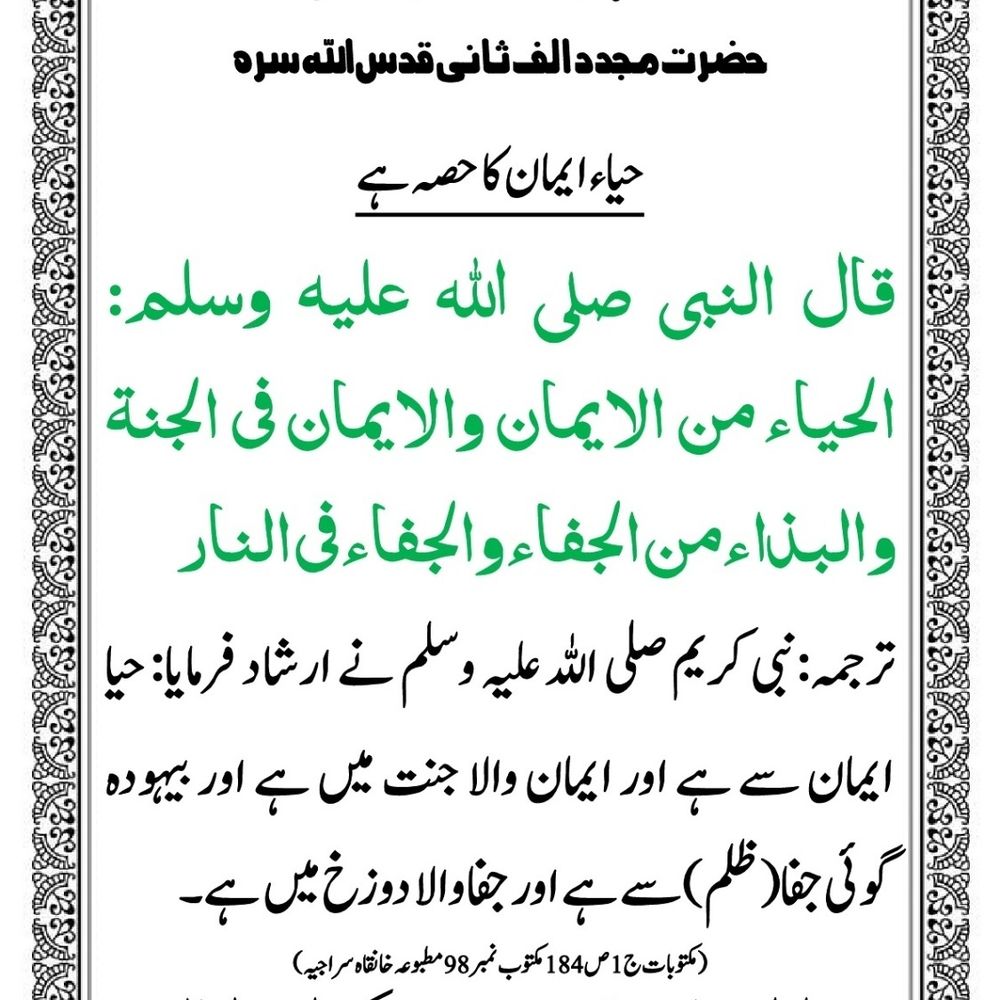 حضرت مجدد الف ثانی قدس اللہ سرہ
حیاء ایمان کا حصہ ہے
قال النبی صلی اللہ علیہ وسلم:
الحیاء من الایمان والایمان فی الجنة
والبذاء من الجفاء والجفاء فی النار
ترجمہ: نبی کریم صلی اللہ علیہ وسلم نے ارشاد فرمایا: حیا
ایمان سے ہے اور ایمان والا جنت میں ہے اور بیہودہ
گوئی جفا (ظلم) سے ہے اور جفا والا دوزخ میں ہے۔
(مکتوبات ج1 ص184 مکتوب نمبر98 مطبوعہ خانقاہ سراجیہ)